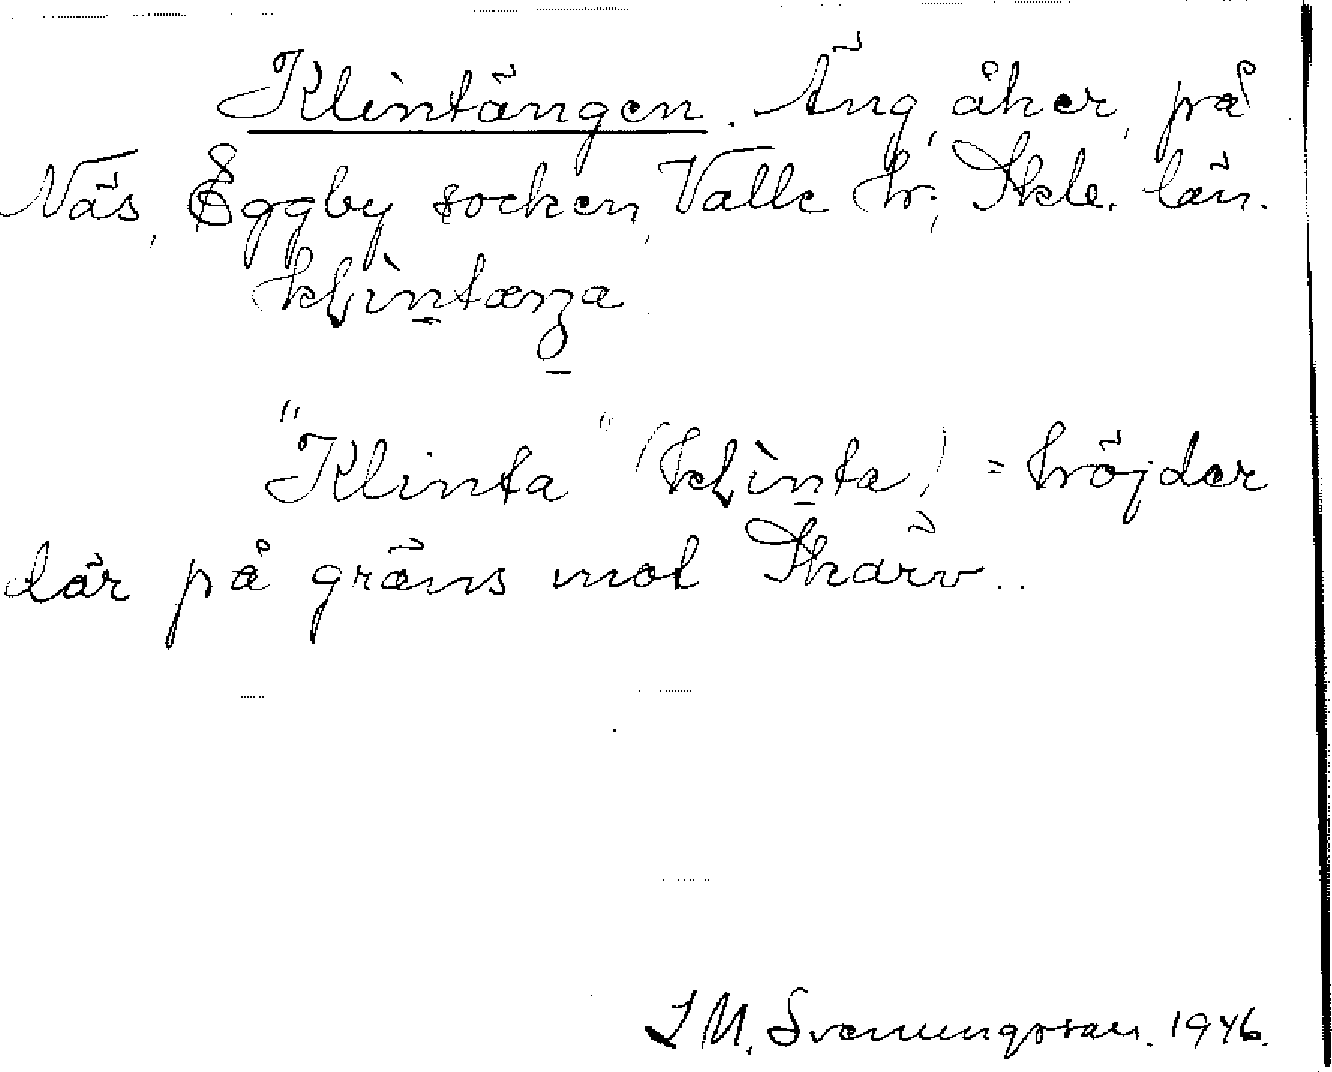 Klintängen. Äng, åker, på
Näs, Eggby socken, Valle hr; Skbl. län.
"Klinta" (kḷìnta) = höjder
där på gräns mot Skärv..
I M. Svenungsson. 1946.